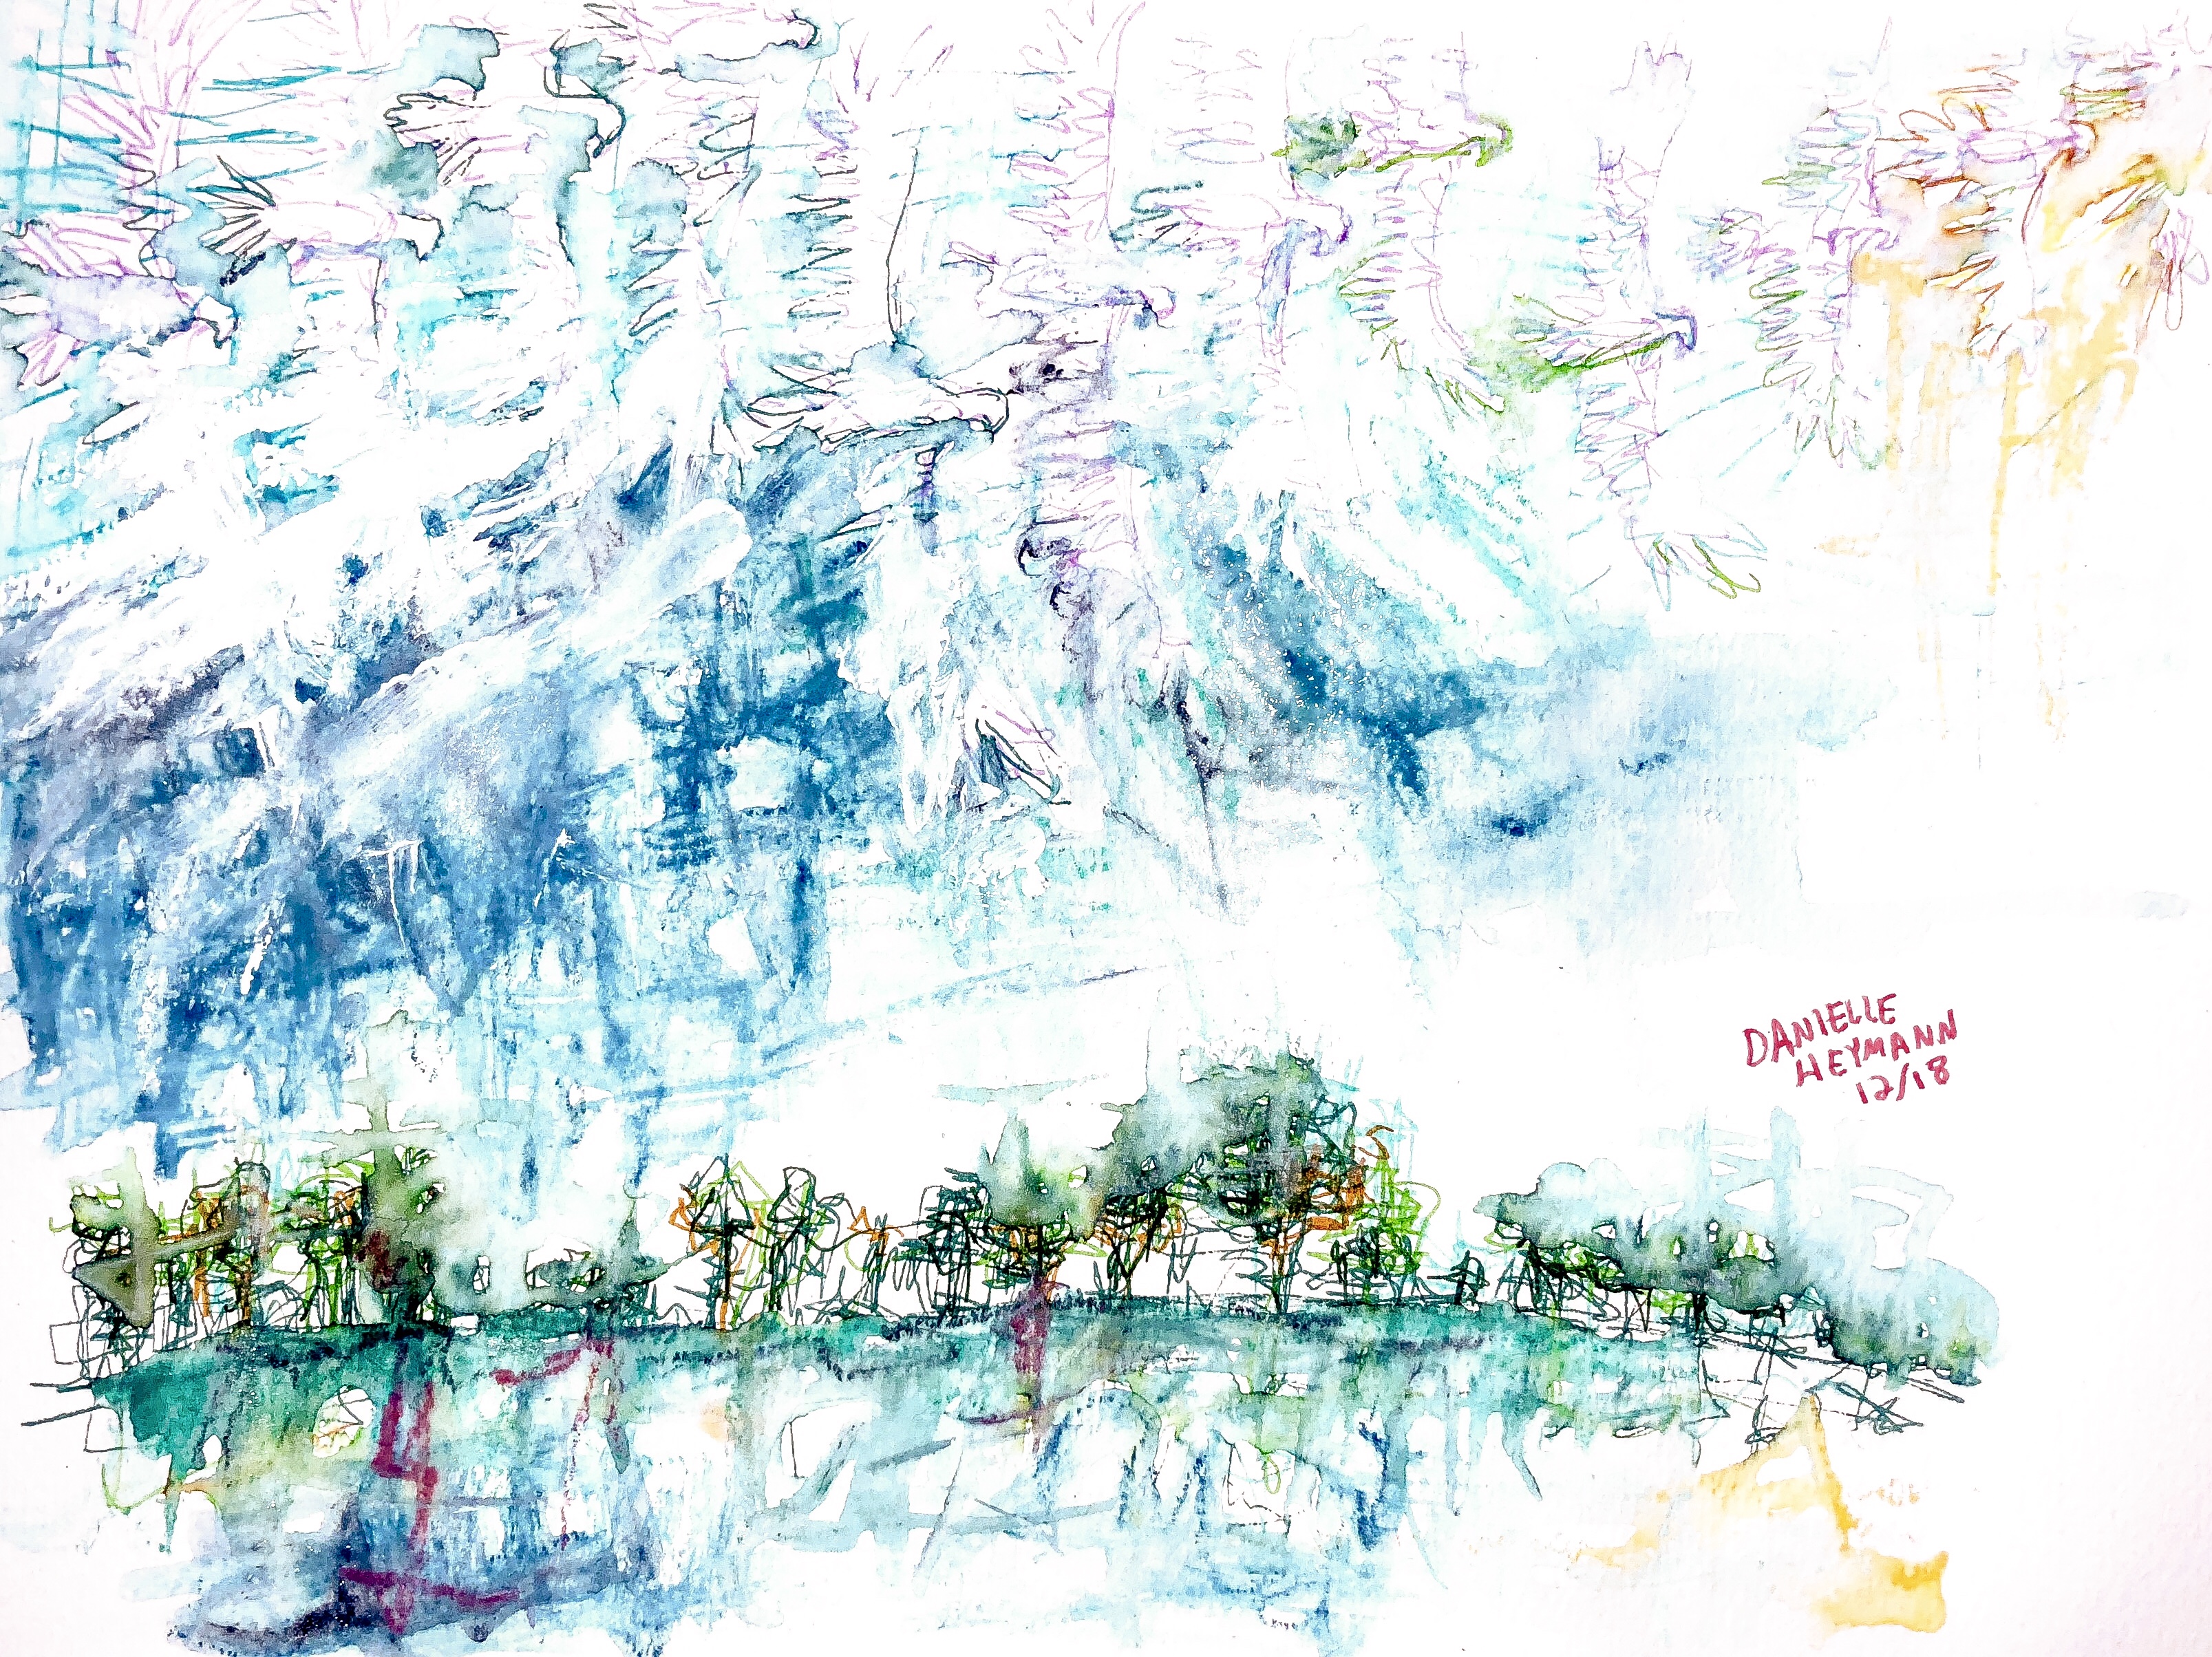 DANIELLE
HEYMANN
12/18